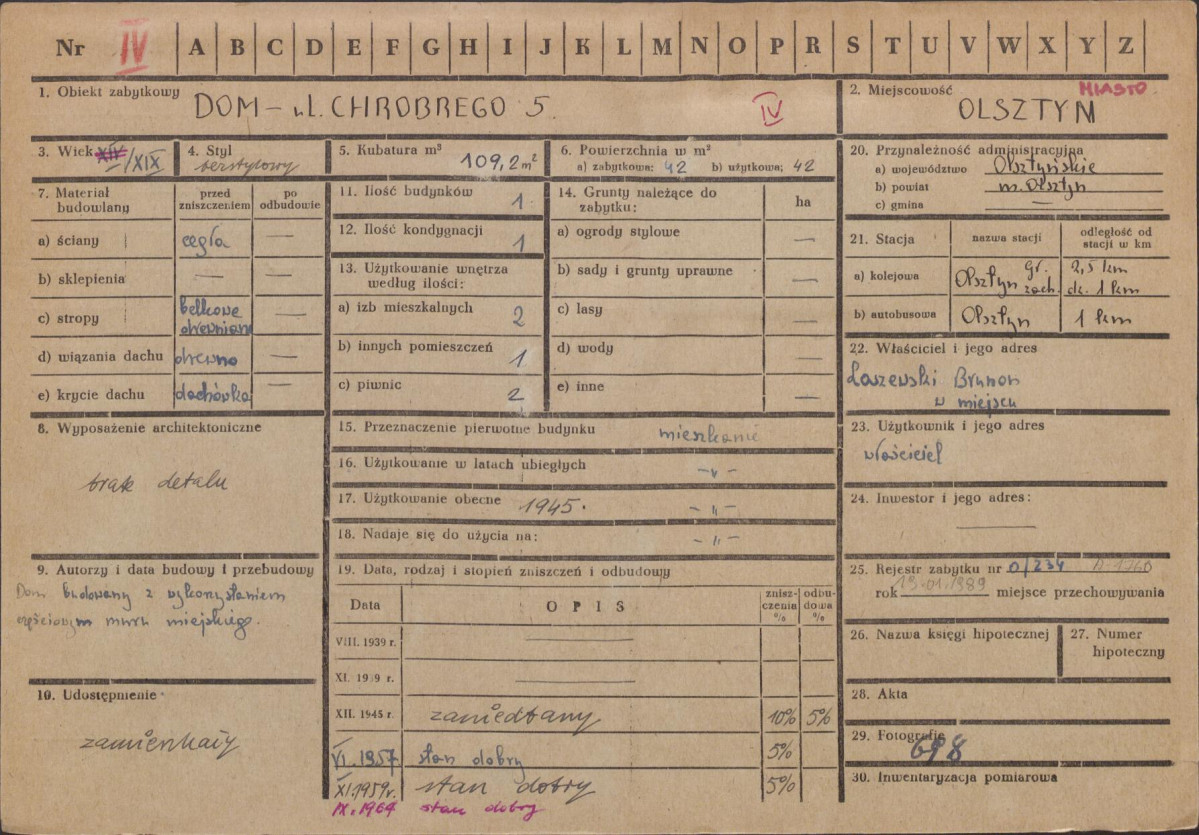 Nr IV A B C D E F G H I J K L M N O P R S T U V W X Y Z
1. Obiekt zabytkowy DOM - ul. CHROBREGO 5 IV
2. Miejscowość MIASTO
OLSZTYN
3. Wiek XIV/XIX
4. Styl
bezstylowy
5. Kubatura m³
109,2 m²
6. Powierzchnia w m²
a) zabytkowa: 42 b) użytkowa: 42
7. Materiał budowlany
przed zniszczeniem
po odbudowie
a) ściany cegła —
b) sklepienia — —
c) stropy belkowe drewniane —
d) wiązania dachu drewno —
e) krycie dachu dachówka —
8. Wyposażenie architektoniczne
brak detalu
9. Autorzy i data budowy i przebudowy
Dom budowany z wykorzystaniem
częściowym muru miejskiego.
10. Udostępnienie
zamieszkały
11. Ilość budynków 1
12. Ilość kondygnacji 1
13. Użytkowanie wnętrza
według ilości:
a) izb mieszkalnych 2
b) innych pomieszczeń 1
c) piwnic 2
14. Grunty należące do
zabytku: ha
a) ogrody stylowe —
b) sady i grunty uprawne —
c) lasy —
d) wody —
e) inne —
15. Przeznaczenie pierwotne budynku mieszkanie
16. Użytkowanie w latach ubiegłych -"-
17. Użytkowanie obecne 1945. -"-
18. Nadaje się do użycia na: -"-
19. Data, rodzaj i stopień zniszczeń i odbudowy
Data OPIS zniszczenia % odbudowa %
VIII. 1939 r. —
XI. 1939 r. —
XII. 1945 r. zaniedbany 10% 5%
VI. 1957 stan dobry 5%
XI.1959r. stan dobry 5%
IX. 1964 stan dobry
20. Przynależność administracyjna
a) województwo Olsztyńskie
b) powiat m. Olsztyn
c) gmina —
21. Stacja nazwa stacji odległość od stacji w km
a) kolejowa Olsztyn gł. zach. 2,5 km dk. 1 km
b) autobusowa Olsztyn 1 km
22. Właściciel i jego adres
Łaszewski Brunon
w miejscu
23. Użytkownik i jego adres
właściciel
24. Inwestor i jego adres:
—
25. Rejestr zabytku nr 0/234 A-1760
rok 13.01.1989 miejsce przechowywania
26. Nazwa księgi hipotecznej
27. Numer
hipoteczny
28. Akta
29. Fotografie
698
30. Inwentaryzacja pomiarowa